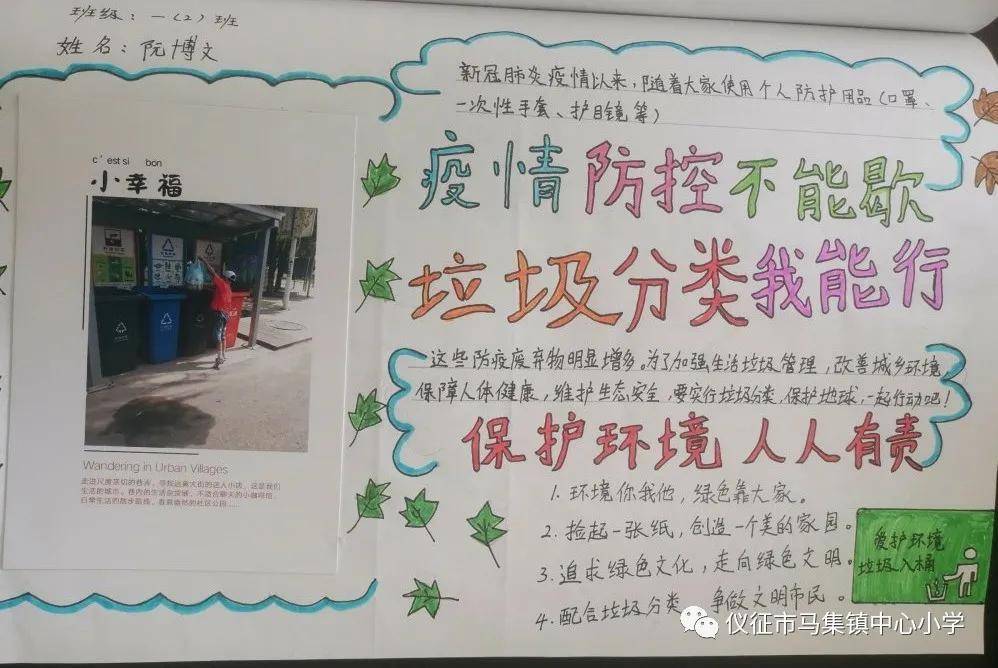 班级：一（2）班
姓名：阮博文
新冠肺炎疫情以来，随着大家使用个人防护用品（口罩、
一次性手套、护目镜等）
疫情防控不能歇
垃圾分类我能行
这些防疫废弃物明显增多。为了加强生活垃圾管理，改善城乡环境，
保障人体健康，维护生态安全，要实行垃圾分类，保护地球，一起行动吧！
保护环境 人人有责
1. 环境你我他，绿色靠大家。
2. 捡起一张纸，创造一个美的家园。
3. 追求绿色文化，走向绿色文明。
4. 配合垃圾分类 争做文明市民。
爱护环境
垃圾入桶
c'est si bon
小幸福
Wandering in Urban Villages
生活的城市。巷内的生活杂货铺，不适合聊天的小咖啡馆，
仪征市马集镇中心小学